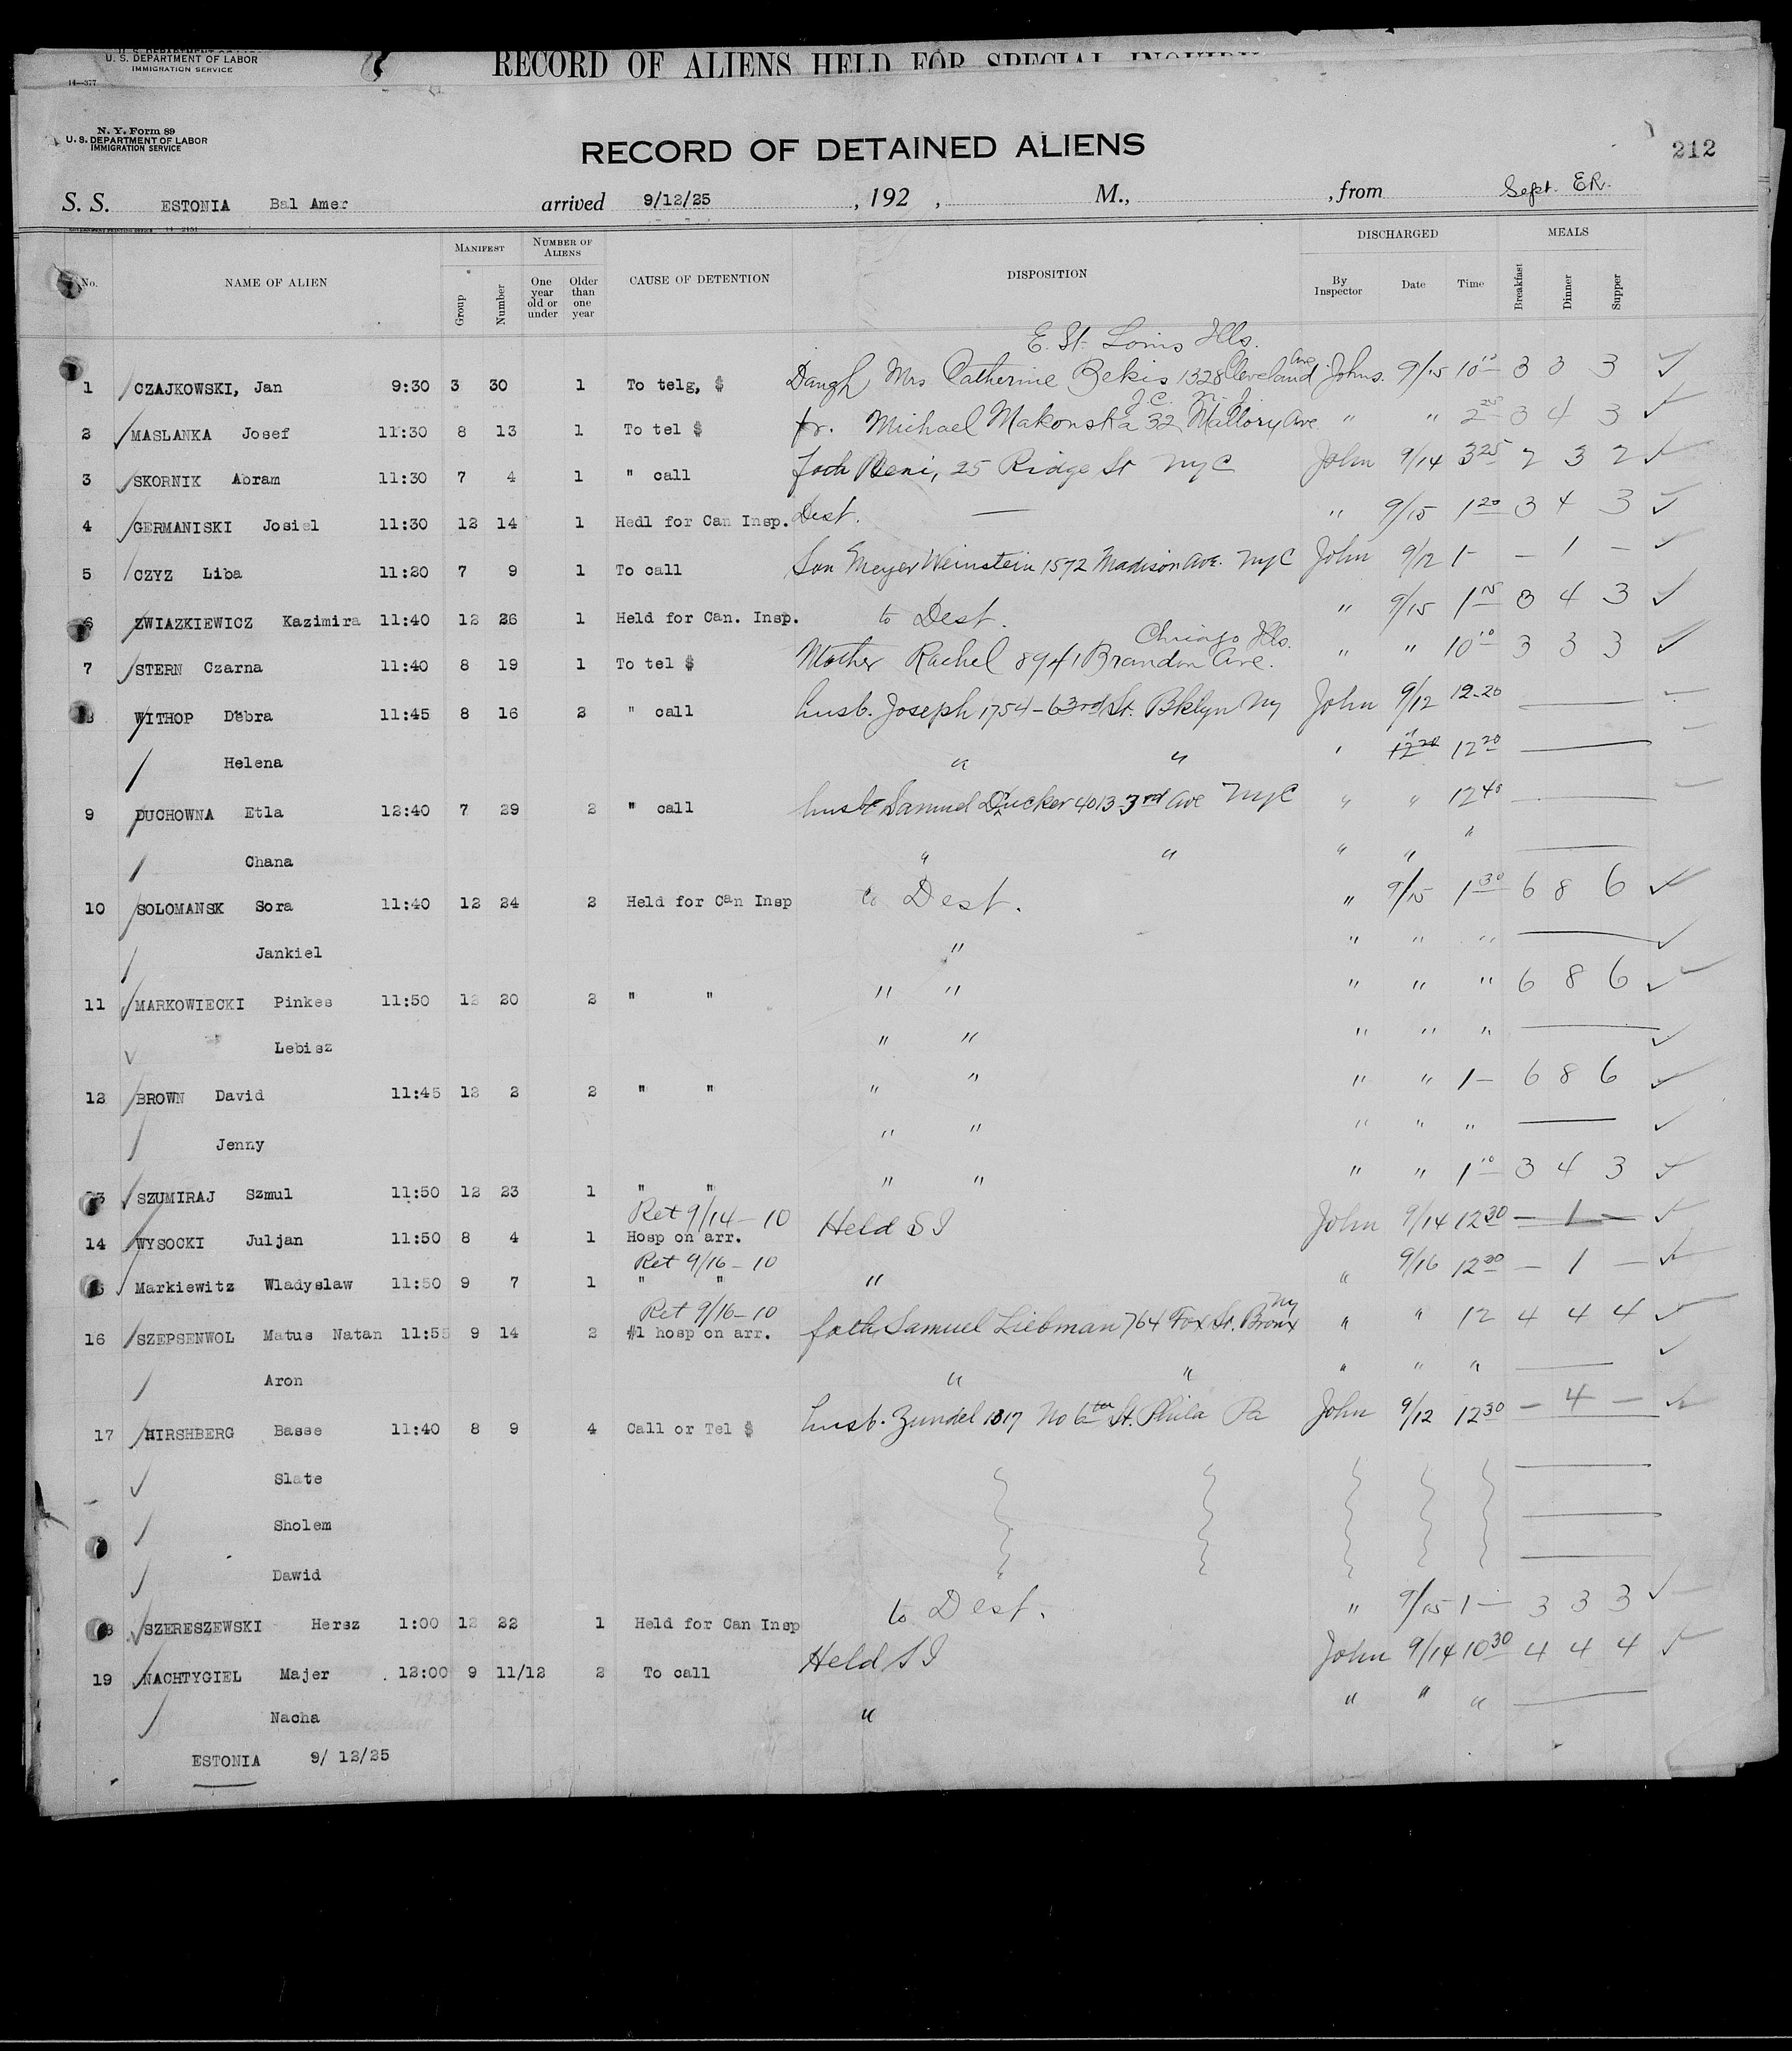 U. S. DEPARTMENT OF LABOR
IMMIGRATION SERVICE
14—377
RECORD OF ALIENS HELD FOR SPECIAL INQUIRY
N. Y. Form 89
U. S. DEPARTMENT OF LABOR
IMMIGRATION SERVICE
RECORD OF DETAINED ALIENS
212
S. S. ESTONIA Bal Amer arrived 9/12/25 , 192 , M., , from Sept. ER.
No. NAME OF ALIEN MANIFEST Group Number NUMBER OF ALIENS One year old or under Older than one year CAUSE OF DETENTION DISPOSITION DISCHARGED By Inspector Date Time MEALS Breakfast Dinner Supper
E. St. Louis Ills.
1 CZAJKOWSKI, Jan 9:30 3 30 1 To telg, $ Daugh Mrs Catherine Bekis 1328 Cleveland Ave Johns. 9/15 10 10 3 3 3
J.C. N.J.
2 MASLANKA Josef 11:30 8 13 1 To tel $ fr. Michael Makonska 32 Mallory Ave " " 2 25 3 4 3
3 SKORNIK Abram 11:30 7 4 1 " call foth Beni, 25 Ridge St NyC John 9/14 3 25 2 3 2
4 GERMANISKI Josiel 11:30 12 14 1 Hedl for Can Insp. Dest. — " 9/15 1 20 3 4 3
5 CZYZ Liba 11:20 7 9 1 To call Son Meyer Weinstein 1572 Madison Ave. NyC John 9/12 1- — 1 —
6 ZWIAZKIEWICZ Kazimira 11:40 12 26 1 Held for Can. Insp. to Dest. " 9/15 1 15 3 4 3
Chicago Ills.
7 STERN Czarna 11:40 8 19 1 To tel $ Mother Rachel 8941 Brandon Ave. " " 10 10 3 3 3
8 WITHOP Debra 11:45 8 16 2 " call husb. Joseph 1754-63rd St. Bklyn Ny John 9/12 12-20 —
Helena " " ' " 12 20 —
9 DUCHOWNA Etla 12:40 7 29 2 " call husb Samuel Ducker 4013-3rd Ave NyC " " 12 40 —
Chana " " " " " —
10 SOLOMANSK Sora 11:40 12 24 2 Held for Can Insp to Dest. " 9/15 1 30 6 8 6
Jankiel " " " " —
11 MARKOWIECKI Pinkes 11:50 12 20 2 " " " " " " " 6 8 6
Lebisz " " " " " —
12 BROWN David 11:45 12 2 2 " " " " " " 1- 6 8 6
Jenny " " " " " —
13 SZUMIRAJ Szmul 11:50 12 23 1 " " " " " " 1 10 3 4 3
Ret 9/14-10
14 WYSOCKI Juljan 11:50 8 4 1 Hosp on arr. Held S I John 9/14 12 30 — 1 —
Ret 9/16-10
15 Markiewitz Wladyslaw 11:50 9 7 1 " " " " 9/16 12 30 — 1 —
Ret 9/16-10
16 SZEPSENWOL Matus Natan 11:55 9 14 2 #1 hosp on arr. foth Samuel Liebman 764 Fox St. Bronx Ny " " 12 4 4 4
Aron " " " " " —
17 HIRSHBERG Basse 11:40 8 9 4 Call or Tel $ husb. Zundel 1817 No 6th St. Phila Pa John 9/12 12 30 — 4 —
Slate —
Sholem —
Dawid —
18 SZERESZEWSKI Hersz 1:00 12 22 1 Held for Can Insp to Dest. " 9/15 1- 3 3 3
19 NACHTYGIEL Majer 12:00 9 11/12 2 To call Held S I John 9/14 10 30 4 4 4
Nacha " " " " —
ESTONIA 9/ 12/25